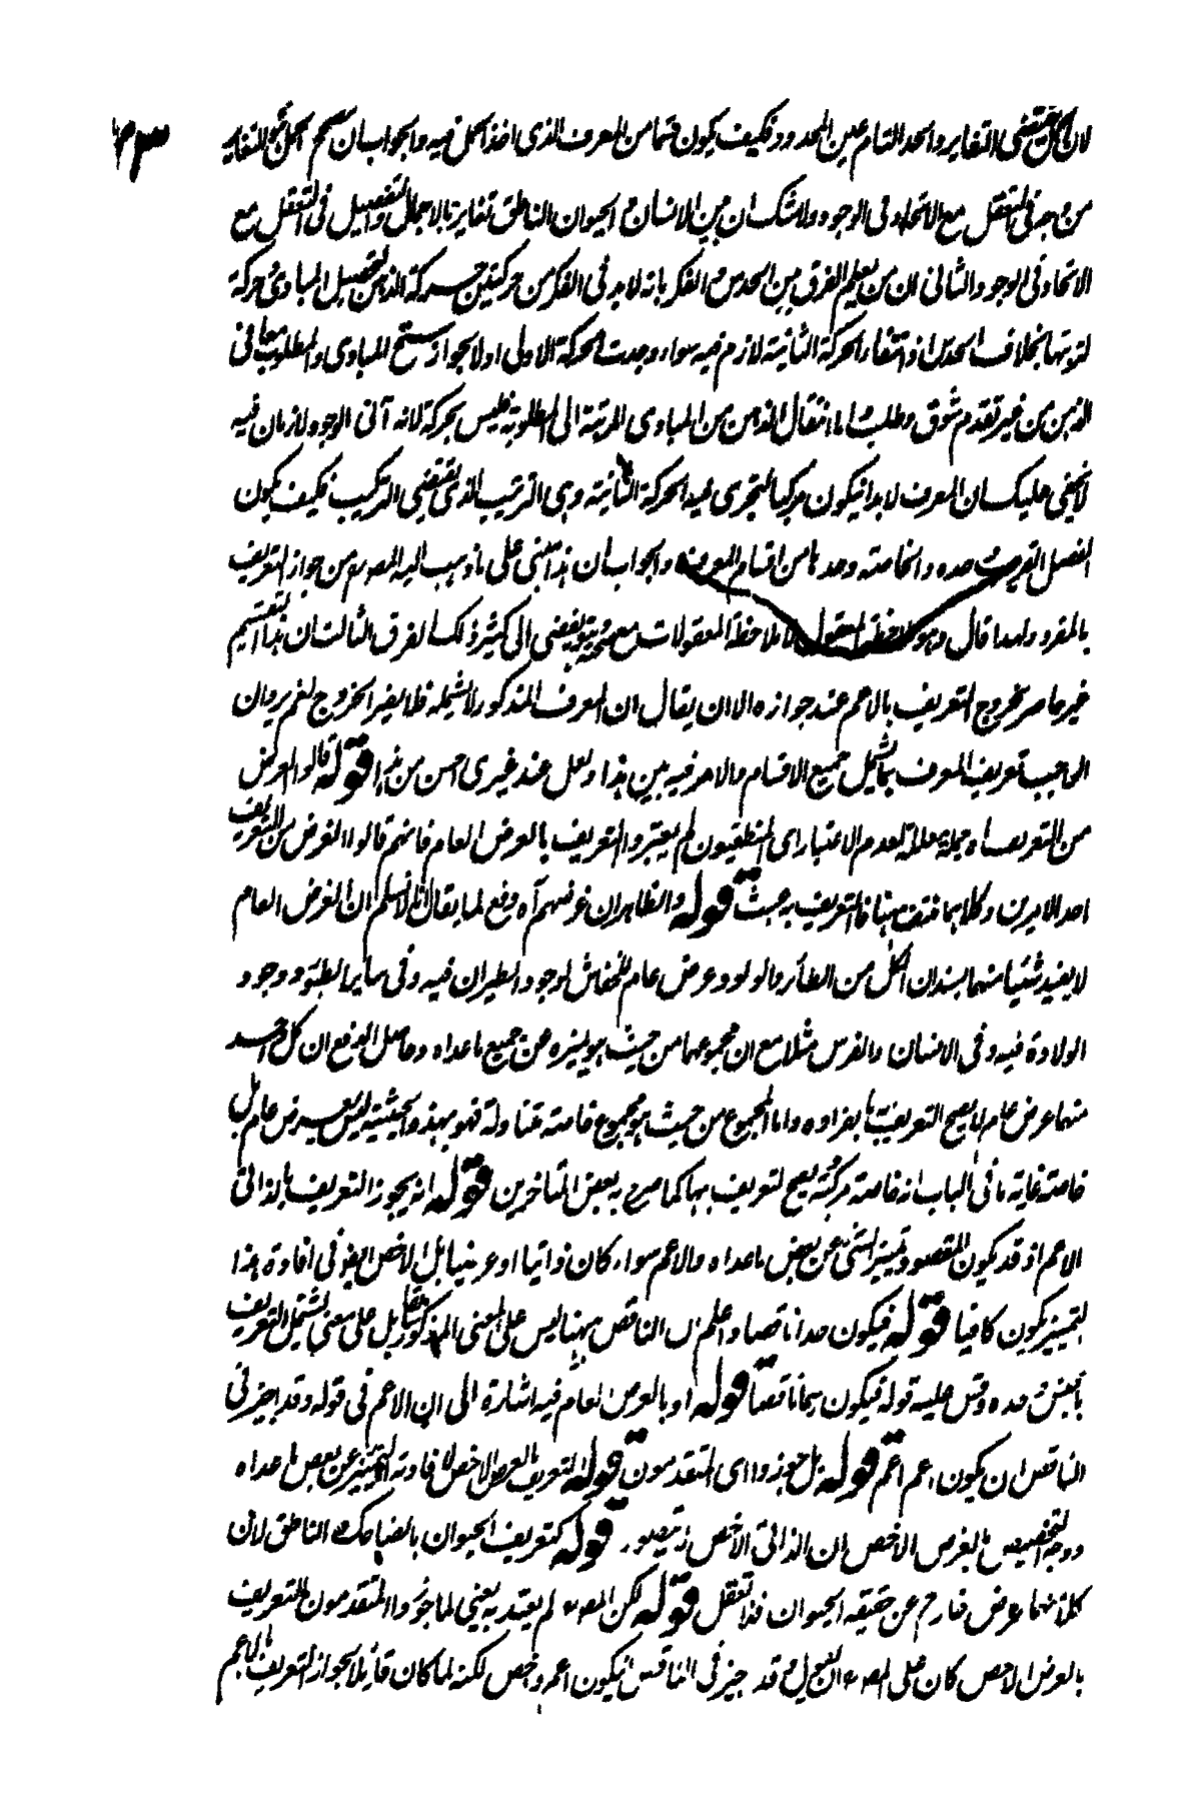 ٦٣
لان الحمل يقتضى التغاير والحد التام عين المحدود فكيف يكون قسما من المعرف الذى اخذ الحمل فيه والجواب ان صحة الحمل التغاير
من وجه فى التعقل مع الاتحاد فى الوجود ولا شك ان بين الانسان و الحيوان الناطق تغاير بالاجمال والتفصيل فى التعقل مع
الاتحاد فى الوجود والثانى ان من يعلم الفرق بين الحدس و الفكر بانه لا بد فى الفكر من حركتين حركة الذهن لتحصيل المبادى وحركة
لترتيبها بخلاف الحدس اذ انتفاء الحركة الثانية لازم فيه سواء وجدت الحركة الاولى اولا بجواز سنح المبادى والمطلوب معا فى
الذهن من غير تقدم شوق وطلب اما انتقال الذهن من المبادى المرتبة الى المطلوب فليس بحركة لانه آنى الوجود لا زمان فيه
لا يخفى عليك ان المعرف لا بد ان يكون مركبا لتجرى فيه الحركة الثانية وهى الترتيب الذى يقتضى التركيب فكيف يكون
الفصل القريب وحده والخاصة وحدها من اقسام المعرف والجواب ان هذا مبنى على ما ذهب اليه المصـ من جواز التعريف
بالمفرد ولهذا قال وهو ملاحظة المعقول لا ملاحظة المعقولات مع يفضى الى الثالث ان هذا التقسيم
غير حاصر لخروج التعريف بالاعم عند جوازه الا ان يقال ان المعرف المذكور لا يشمله فلا يضر الخروج لغم يرد ان
الواجب تعريف المعرف بما يشمل جميع الاقسام والامر فيه هين هذا ولعل عند غيرى احسن من هذا قوله قالوا الغرض
من التعريف اه جملة معللة لعدم الاعتبار اى المنطقيون لم يعتبروا التعريف بالعرض العام فانهم قالوا الغرض من التعريف
احد الامرين وكلاهما منتف ههنا فالتعريف به عبث قوله والظاهر ان غرضهم آه دفع لما يقال انا لا نسلم ان العرض العام
لا يفيد شيئا منهما بسند ان كل من الطائر والولود عرض عام للخفاش لوجود الطيران فيه وفى سائر الطيور ووجود
الولادة فيه وفى الانسان والفرس مثلا مع ان مجموعهما من حيث هو يميزه عن جميع ما عداه وحاصل الدفع ان كل واحد
منهما عرض عام لا يصح التعريف بها بانفراده واما المجموع من حيث هو مجموع خاصة متناولة فهو بهذه الحيثية ليس بعرض عام بل
خاصة غاية ما فى الباب انه خاصة مركبة يصح التعريف بها كما صرح به بعض المتاخرين قوله انه يجوز التعريف بالذاتى
الاعم اذ قد يكون المقصود تمييز الشئ عن بعض ما عداه والاعم سواء كان ذاتيا او عرضيا بل الاخص ايضا فى افادة هذا
التمييز يكون كافيا قوله فيكون حدا ناقصا واعلم ان الناقص ههنا ليس على المعنى المذكور سابقا بل على معنى يشتمل التعريف
بالجنس وحده وقس عليه قوله فيكون رسما ناقصا قوله او بالعرض العام فيه اشارة الى ان الاعم فى قوله وقد اجيز فى
الناقص ان يكون اعم اعم قوله بل جوزوا اى المتقدمون قوله التعريف بالعرض الاخص لافادته التمييز عن بعض ما عداه
ووجه التخصيص بالعرض الاخص ان الذاتى الاخص لا يتصور قوله كتعريف الحيوان بالضاحك و الناطق لان
كلا منهما عرض خارج عن حقيقة الحيوان فلا تغفل قوله لكن المصـ لم يعتد به يعنى لما جوز المتقدمون التعريف
بالعرض الاخص كان على المصـ ان يقول وقد جيز فى الناقص ان يكون اعم واخص لكنه لما كان قائلا بجواز التعريف بالاعم